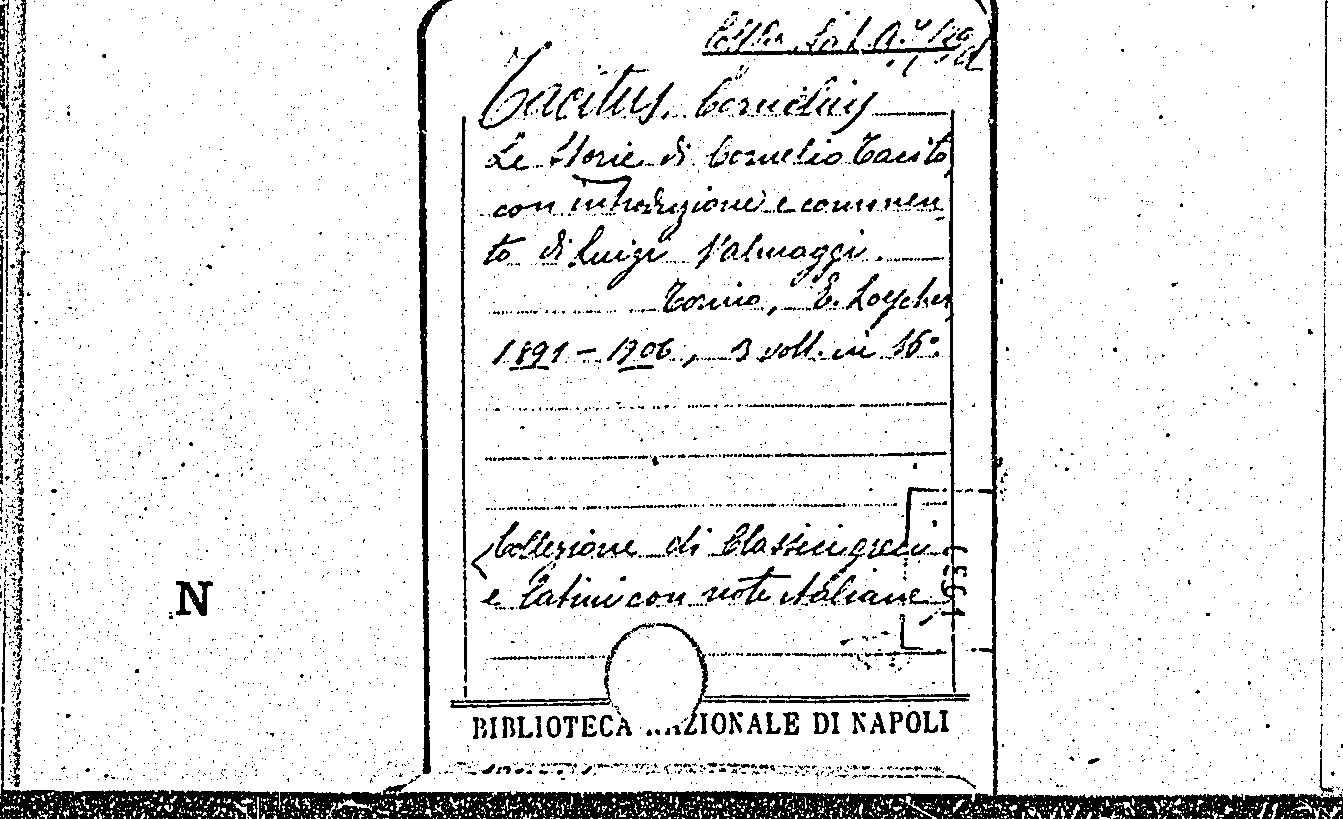 Tacitus, Cornelius
Le Storie di Cornelio Tacito,
con introduzione e commen-
to di Luigi Valmaggi.
Torino, E. Loescher,
1891-1906, 3 voll. in 16°.
(Collezione di Classici greci
e latini con note italiane
N
BIBLIOTECA NAZIONALE DI NAPOLI